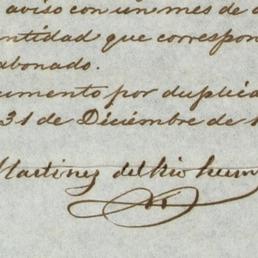 aviso con un mes de a
ntidad que correspon
abonado.
umento por duplica
31 de Diciembre de 1
Martinez del Rio herm